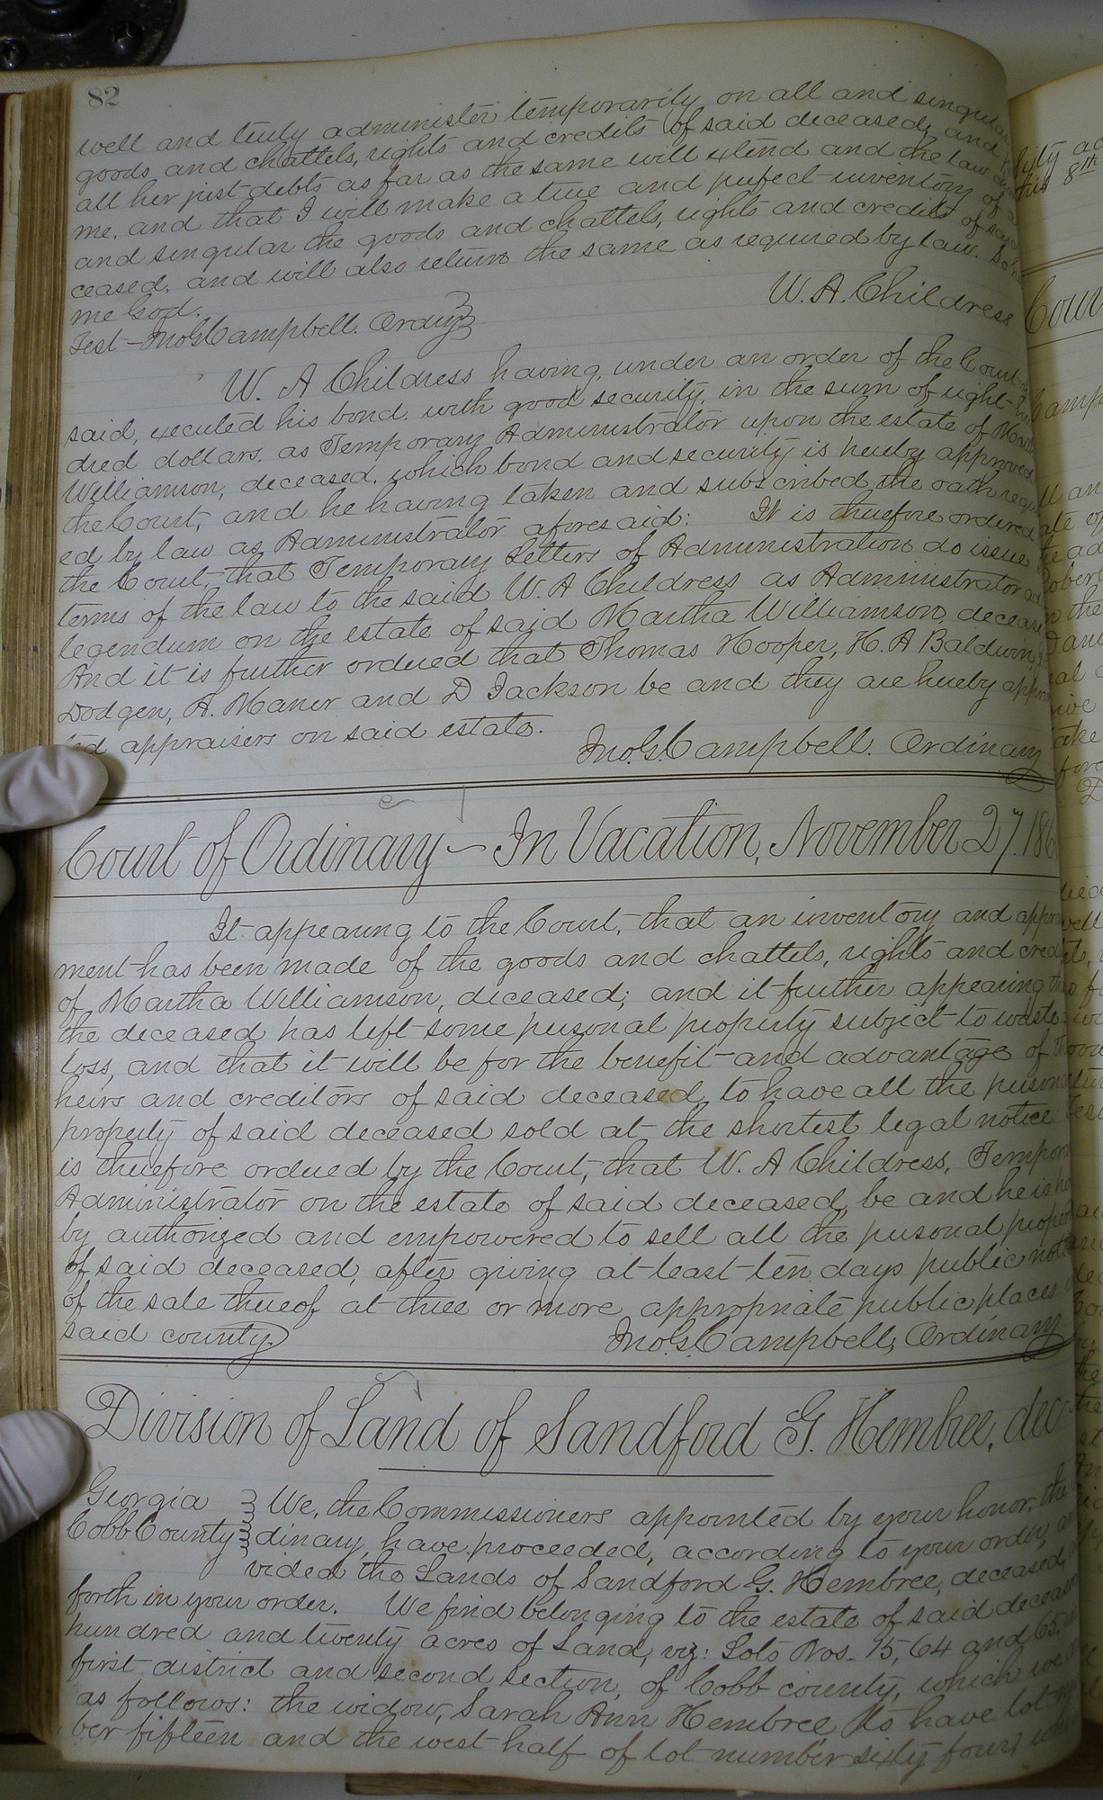 82
well and truly administer temporarily on all and singular
goods and chattels, rights and credits of said deceased, and
all her just debts as far as the same will extend and the law
me, and that I will make a true and perfect inventory of
and singular the goods and chattels, rights and credits of said
ceased, and will also return the same as required by law. So
me God.
W. A. Childress
Test - Jno. G. Campbell. Ordry
W. A Childress having, under an order of the Court
said, executed his bond, with good security, in the sum of eight-
dred dollars. as Temporary Administrator upon the estate of Martha
Williamson, deceased, which bond and security is hereby approved
the Court, and he having taken and subscribed the oath requ
ed by law as Administrator aforesaid: It is therefore ordered
the Court, that Temporary Letters of Administration do issue
terms of the law to the said W. A Childress as Administrator ad
legendum on the estate of said Martha Williamson, deceased
And it is further ordered that Thomas Hooper, H. A Baldwin,
Dodgen, A. Maner and D Jackson be and they are hereby appoin
ted appraisers on said estate.
Jno. G. Campbell. Ordinary
Court of Ordinary - In Vacation, November 27. 186
It appearing to the Court, that an inventory and apprai
ment has been made of the goods and chattels, rights and credits
of Martha Williamson, deceased; and it further appearing tha
the deceased has left some personal property subject to waste
loss, and that it will be for the benefit and advantage of the
heirs and creditors of said deceased, to have all the personal
property of said deceased sold at the shortest legal notice
is therefore ordered by the Court, that W. A Childress, Tempora
Administrator on the estate of said deceased, be and he is he
by authorized and empowered to sell all the personal property
of said deceased, after giving at least ten days public notice
of the sale thereof at three or more appropriate public places
said county.
Jno. G. Campbell, Ordinary
Division of Land of Sandford G. Hembree, dec
Georgia We, the Commissioners appointed by your honor, the
Cobb County dinary, have proceeded, according to your order,
vided the Lands of Sandford G. Hembree, deceased,
forth in your order. We find belonging to the estate of said deceased
hundred and twenty acres of Land, viz: Lots Nos. 15, 64 and 65.
first district and second section, of Cobb county, which we
as follows: the widow, Sarah Ann Hembree to have lot
ber fifteen and the west half of lot number sixty four,